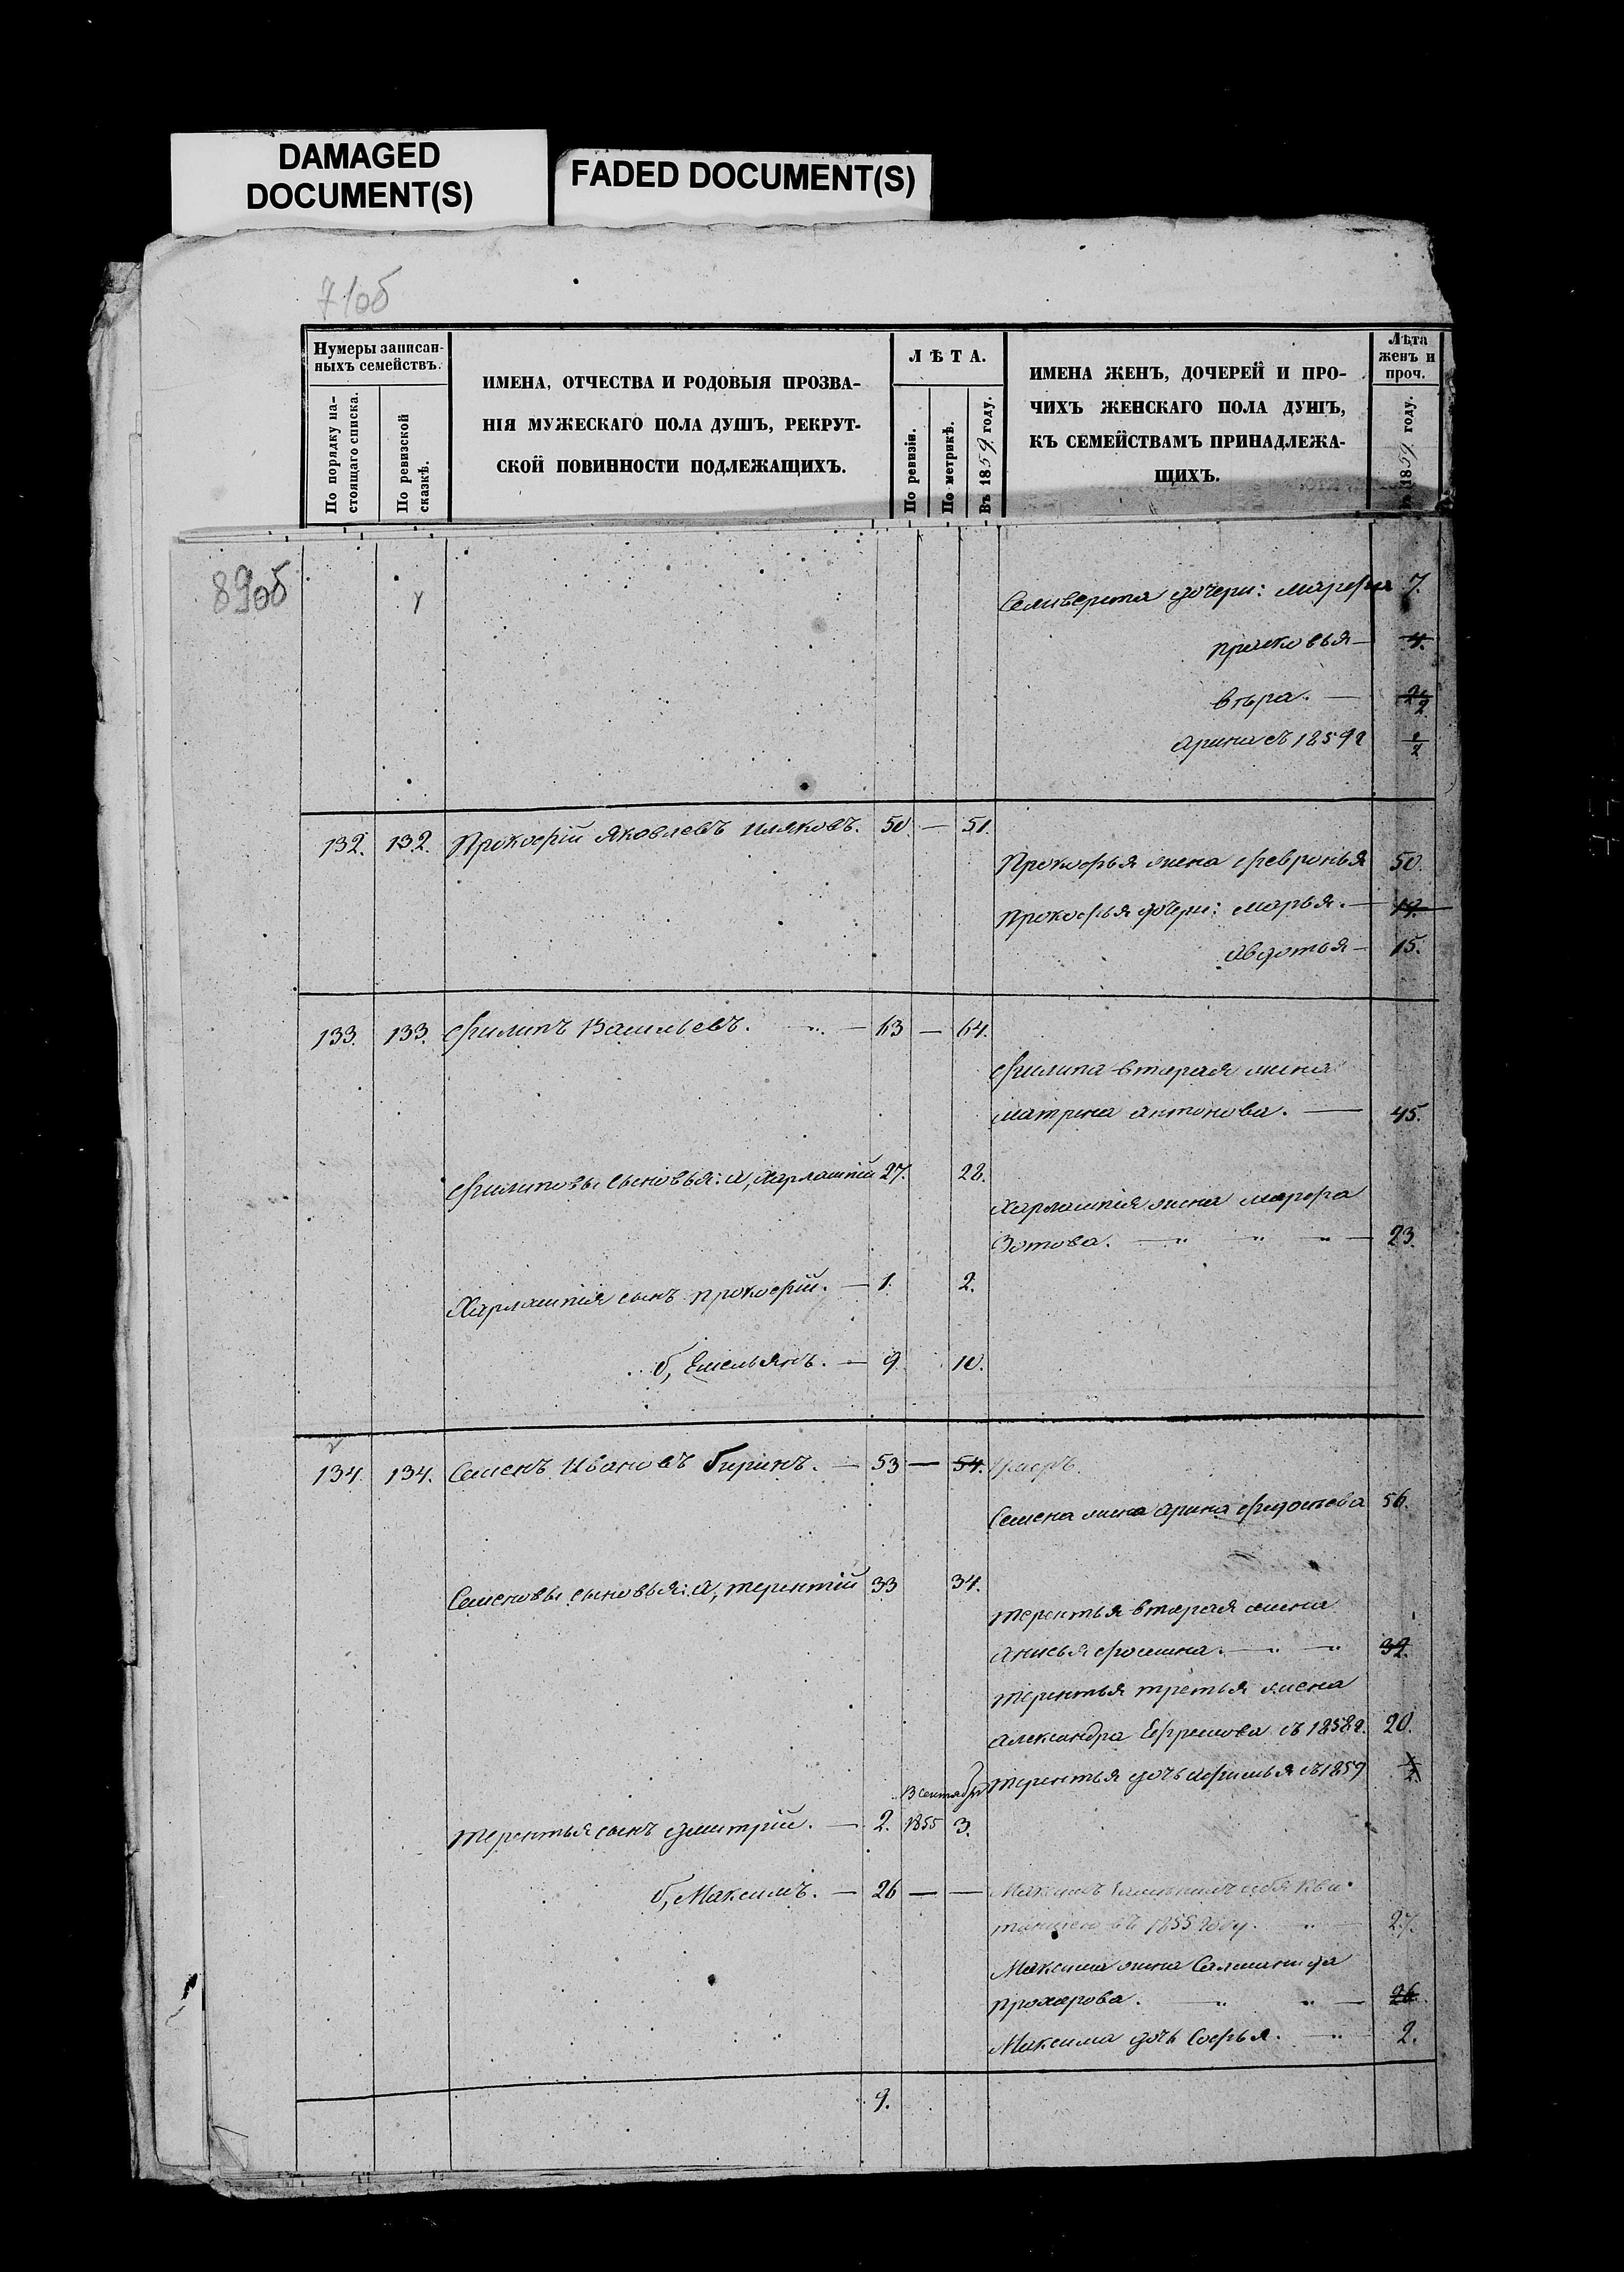 DAMAGED
DOCUMENT(S)
FADED DOCUMENT(S)
71об
Нумеры записан-
ныхъ семействъ.
По порядку на-
стоящаго списка.
По ревизской
сказкѣ.
ИМЕНА, ОТЧЕСТВА И РОДОВЫЯ ПРОЗВА-
НІЯ МУЖЕСКАГО ПОЛА ДУШЪ, РЕКРУТ-
СКОЙ ПОВИННОСТИ ПОДЛЕЖАЩИХЪ.
ЛѢТА.
По ревизіи.
По метрикѣ.
Въ 1859 году.
ИМЕНА ЖЕНЪ, ДОЧЕРЕЙ И ПРО-
ЧИХЪ ЖЕНСКАГО ПОЛА ДУШЪ,
КЪ СЕМЕЙСТВАМЪ ПРИНАДЛЕЖА-
ЩИХЪ.
Лѣта
женъ и
проч.
Въ 1859 году.
89об
Селиверста дочери: марефа 7.
прасковья — 4.
вѣра. — 2
арина съ 1859г 1/2
132. 132. Прокофій Яковлевъ 50. — 51.
Прокофья жена февронья 50.
Прокофья дочери: марья. — 17.
Авдотья — 15.
133. 133. Филипъ Васильевъ. " — 63 — 64.
Филипа вторая жена
матрена антонова. — 45.
Филиповы сыновья: а, Харлампій 27. 28.
Харлампія жена марфа
Зотова. — " " " — 23.
Харлампія сынъ прокофій. — 1. 2.
б, Емельянъ. — 9. 10.
134. 134. Семенъ Ивановъ Гиринъ. — 53 — 54. Умеръ.
Семена жена арина федосѣева 56.
Семеновы сыновья: а, терентій 33 34.
терентья вторая жена
анисья фомина. — " — " 32.
терентья третья жена
александра Ефремова съ 1858г. 20.
терентья дочь афимья съ 1859 1/2
В сентябрѣ
терентья сынъ дмитрій. — 2. 1855 3.
б, Максимъ. — 26 — — Максимъ замѣнилъ себя кви-
танцею въ 1855 году. " — 27.
Максима жена Саломанида
прохарова. — " " — 26.
Максима дочь Софья. — " 2.
9.